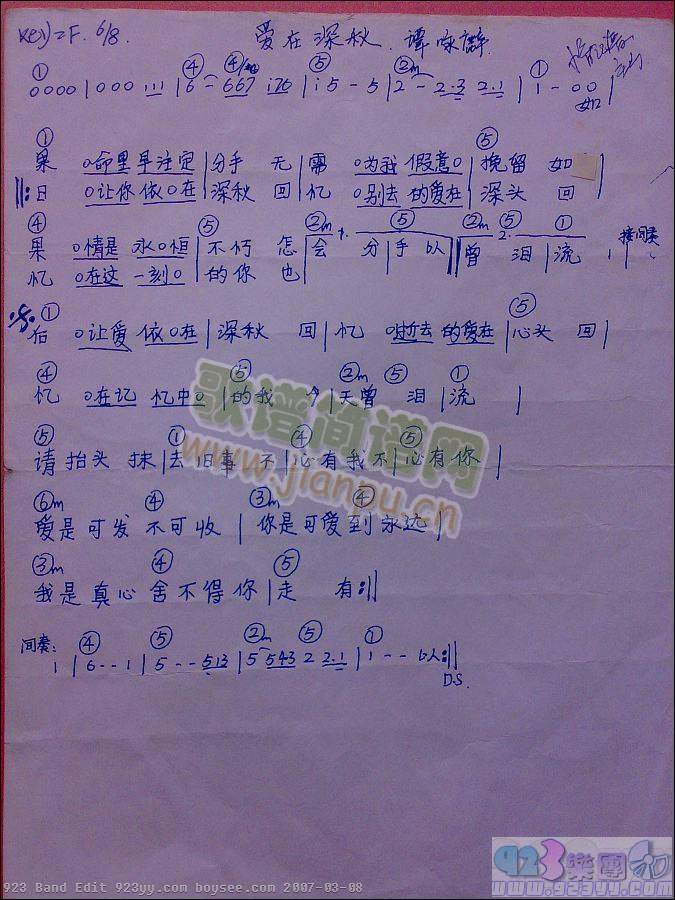 Key=F. 6/8. 爱在深秋. 谭咏麟
① ④ ④/ ⑤ ②m ①
0000 | 000 111 | 6 - 667 i76 | i5 - 5 | 2 - 2·3 2·1 | 1 - 00 如 |
① ⑤
果 0命里早注定 | 分手 无 需 0为我 假意0 | 挽留 如 |
‖: 日 0让你 依0在 | 深秋 回 忆 0别去 的爱在 | 深头 回 |
④ ⑤ ②m 1. ⑤ ②m 2. ⑤ ①
果 0情是 永0恒 | 不朽 怎 | 会 分 | 手 以 ‖ 曾 泪 | 流 , | 接间奏
忆 0在这 一刻0 | 的你 也
① ⑤
后 0让爱 依0在 | 深秋 回 | 忆 0逝去 的爱在 | 心头 回 |
④ ⑤ ②m ⑤ ①
忆 0在记 忆中0 | 的我 今 | 天曾 泪 | 流 |
⑤ ① ④ ⑤
请 抬头 抹 | 去 旧事 不 | 心有我 不 | 心有你 |
⑥m ④ ③m ④
爱是可发不可收 | 你是可爱到永远 |
③m ④ ⑤
我是真心舍不得你 | 走 有 :‖
间奏: ④ ⑤ ②m ⑤ ①
1 | 6 - - 1 | 5 - - 513 | 5 543 2 2·1 | 1 - - 以 :‖
D.S.
歌谱简谱网
www.jianpu.cn
923樂團
www.923yy.com
923 Band Edit 923yy.com boysee.com 2007-03-08